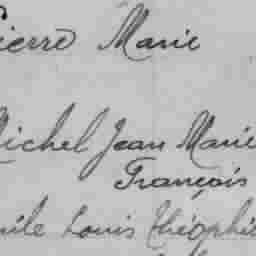 Pierre Marie
Michel Jean Marie
François
Emile Louis Théophile